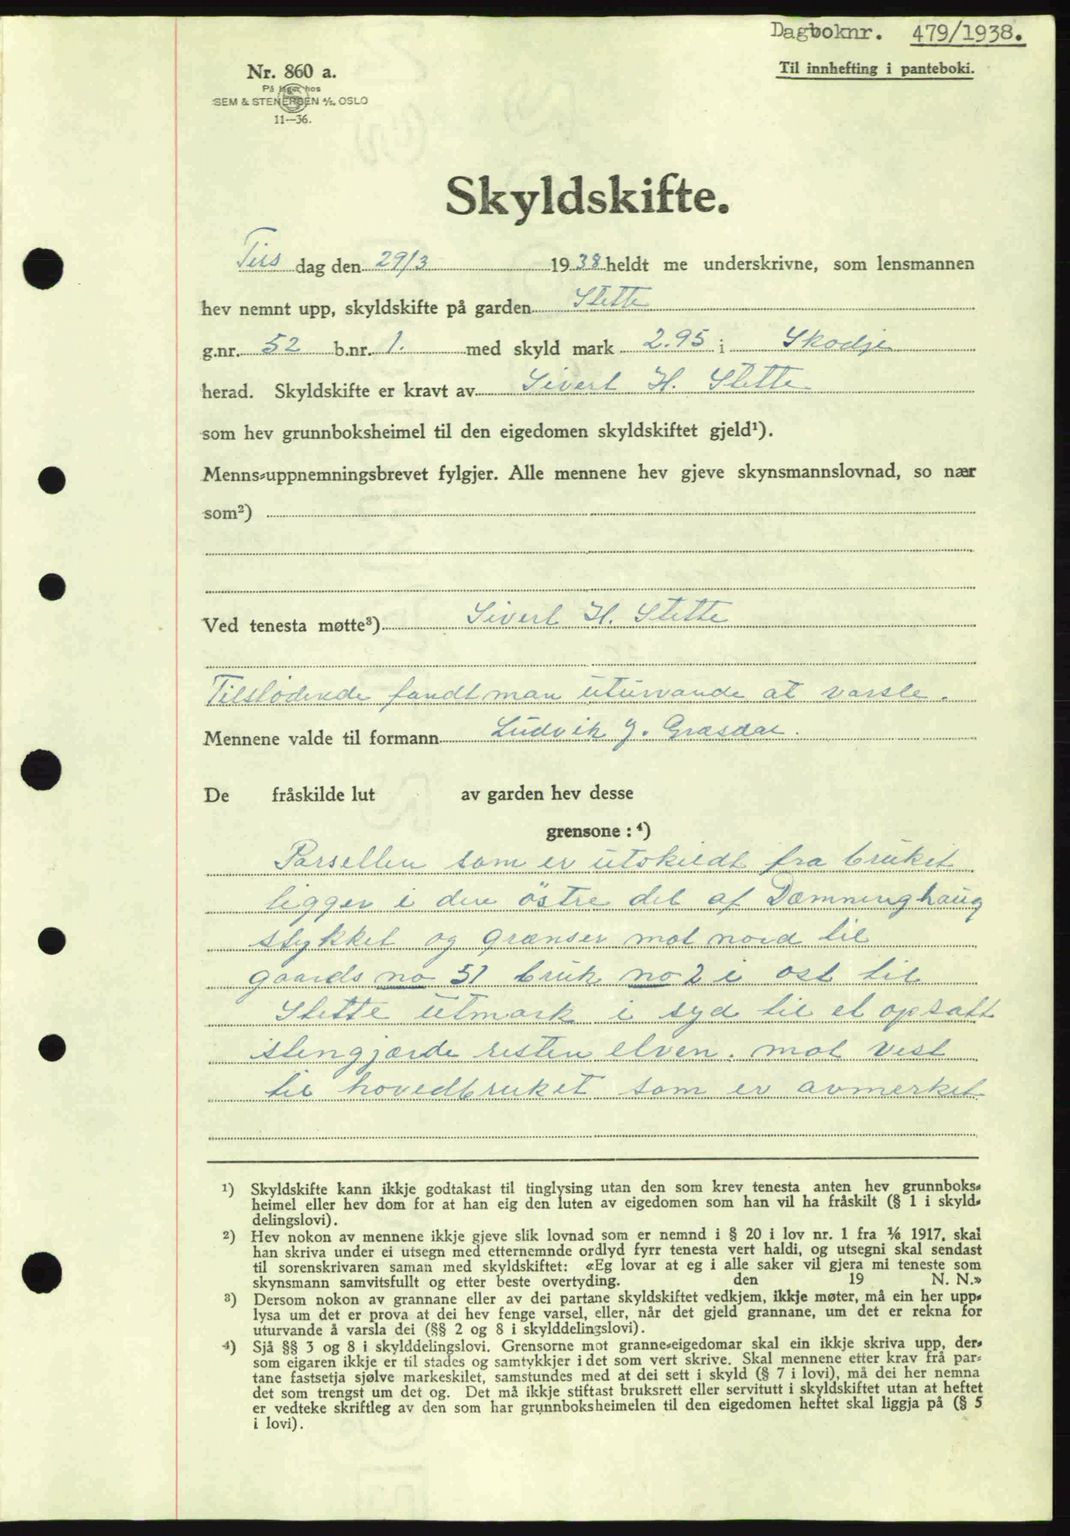 Dagboknr. 479/1938.
Til innhefting i panteboki.
Nr. 860 a.
På lager hos
SEM & STENERSEN A/S, OSLO
11—36.
Skyldskifte.
Tirs dag den 29/3 1938 heldt me underskrivne, som lensmannen
hev nemnt upp, skyldskifte på garden Stette
g.nr. 52 b.nr. 1. med skyld mark 2.95 i Skodje
herad. Skyldskifte er kravt av Sivert H. Stette
som hev grunnboksheimel til den eigedomen skyldskiftet gjeld¹).
Menns-uppnemningsbrevet fylgjer. Alle mennene hev gjeve skynsmannslovnad, so nær
som²)
Ved tenesta møtte³) Sivert H. Stette
Tilstödende fandt man uturvande at varsle.
Mennene valde til formann Ludvik J. Græsdal.
De fråskilde lut av garden hev desse
grensone : ⁴)
Parsellen som er utskildt fra bruket
ligger i den östre del af Dæmninghaug
stykket og grænser mot nord til
gaards no 51 bruk no 2 i ost til
Stette utmark i syd til et opsatt
stengjærde resten elven. mot vest
til hovedbruket som er avmerket
¹) Skyldskifte kann ikkje godtakast til tinglysing utan den som krev tenesta anten hev grunnboks-
heimel eller hev dom for at han eig den luten av eigedomen som han vil ha fråskilt (§ 1 i skyld-
delingslovi).
²) Hev nokon av mennene ikkje gjeve slik lovnad som er nemnd i § 20 i lov nr. 1 fra ⅙ 1917, skal
han skriva under ei utsegn med etternemnde ordlyd fyrr tenesta vert haldi, og utsegni skal sendast
til sorenskrivaren saman med skyldskiftet: «Eg lovar at eg i alle saker vil gjera mi teneste som
skynsmann samvitsfullt og etter beste overtyding. den 19 N. N.»
³) Dersom nokon av grannane eller av dei partane skyldskiftet vedkjem, ikkje møter, må ein her upp-
lysa um det er prova at dei hev fenge varsel, eller, når det gjeld grannane, um det er rekna for
uturvande å varsla dei (§§ 2 og 8 i skylddelingslovi).
⁴) Sjå §§ 3 og 8 i skylddelingslovi. Grensorne mot granne-eigedomar skal ein ikkje skriva upp, der-
som eigaren ikkje er til stades og samtykkjer i det som vert skrive. Skal mennene etter krav frå par-
tane fastsetja sjølve markeskilet, samstundes med at dei sett i skyld (§ 7 i lovi), må dei her nemna
det som trengst um det og. Det må ikkje stiftast bruksrett eller servitutt i skyldskiftet utan at heftet
er vedteke skriftleg av den som har grunnboksheimelen til den eigedomen heftet skal liggja på (§ 5
i lovi).